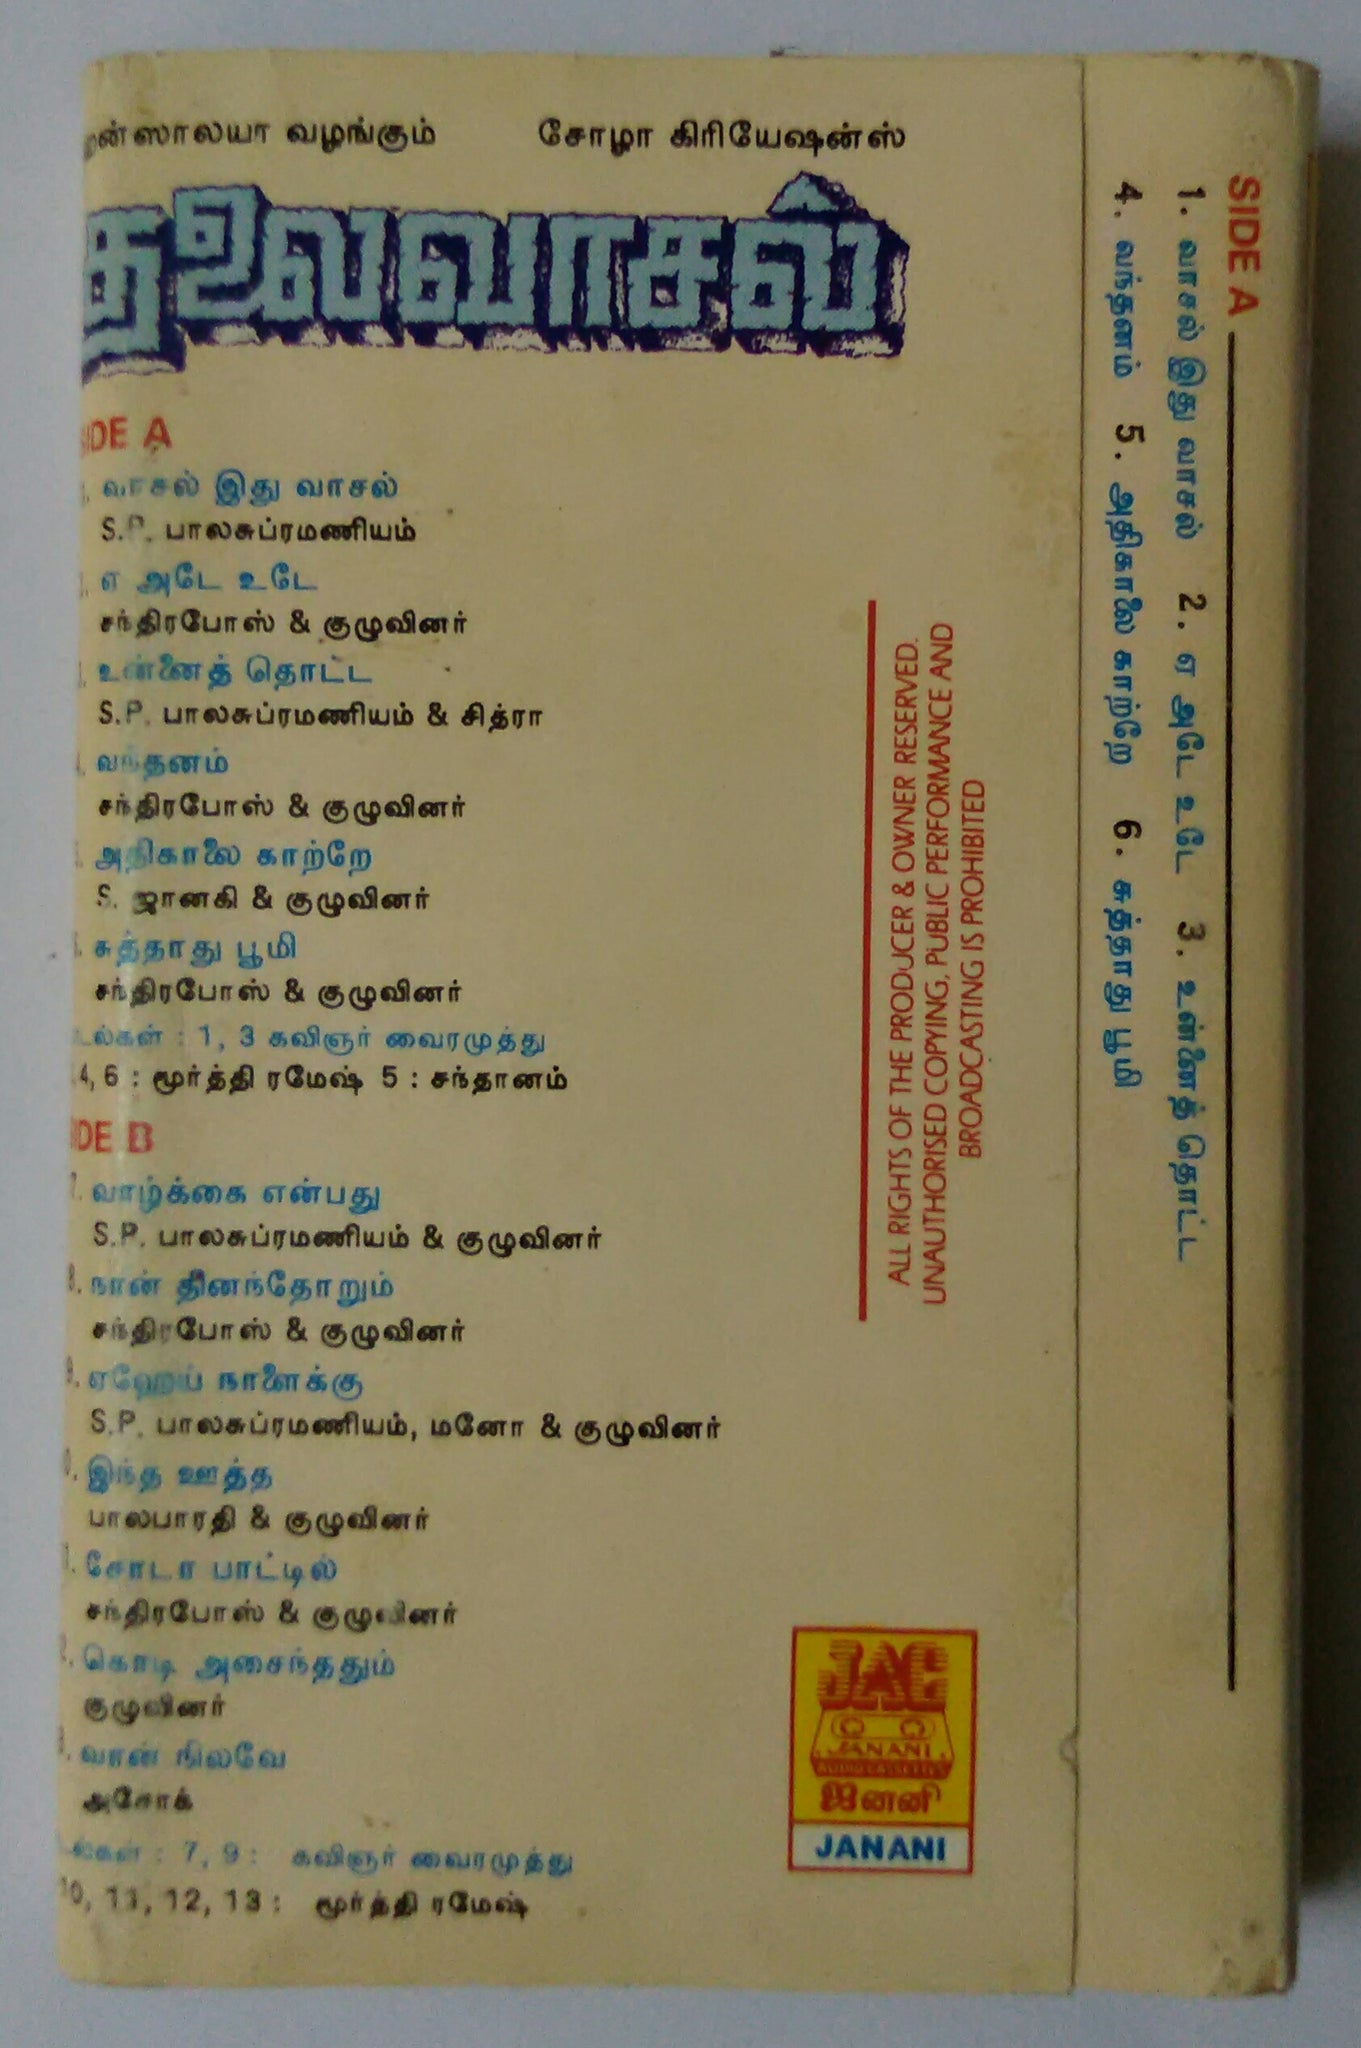 வழங்கும் சோழா கிரியேஷன்ஸ்
தலைவாசல்
SIDE A
வாசல் இது வாசல்
S.P. பாலசுப்ரமணியம்
எ அடே உடே
சந்திரபோஸ் & குழுவினர்
உன்னைத் தொட்ட
S.P. பாலசுப்ரமணியம் & சித்ரா
வந்தனம்
சந்திரபோஸ் & குழுவினர்
அதிகாலை காற்றே
S. ஜானகி & குழுவினர்
சுத்தாது பூமி
சந்திரபோஸ் & குழுவினர்
டல்கள் : 1, 3 கவிஞர் வைரமுத்து
4, 6 : மூர்த்தி ரமேஷ் 5 : சந்தானம்
IDE B
7. வாழ்க்கை என்பது
S.P. பாலசுப்ரமணியம் & குழுவினர்
8. நான் தினந்தோறும்
சந்திரபோஸ் & குழுவினர்
9. ஏஹேய் நாளைக்கு
S.P. பாலசுப்ரமணியம், மனோ & குழுவினர்
0. இந்த ஊத்த
பாலபாரதி & குழுவினர்
1. சோடா பாட்டில்
சந்திரபோஸ் & குழுவினர்
2. கொடி அசைந்ததும்
குழுவினர்
3. வான் நிலவே
அசோக்
ல்கள் : 7, 9 : கவிஞர் வைரமுத்து
10, 11, 12, 13 : மூர்த்தி ரமேஷ்
ALL RIGHTS OF THE PRODUCER & OWNER RESERVED.
UNAUTHORISED COPYING, PUBLIC PERFORMANCE AND
BROADCASTING IS PROHIBITED
JAC
JANANI
AUDIO CASSETTES
ஜனனி
JANANI
SIDE A
1. வாசல் இது வாசல் 2. எ அடே உடே 3. உன்னைத் தொட்ட
4. வந்தனம் 5. அதிகாலை காற்றே 6. சுத்தாது பூமி